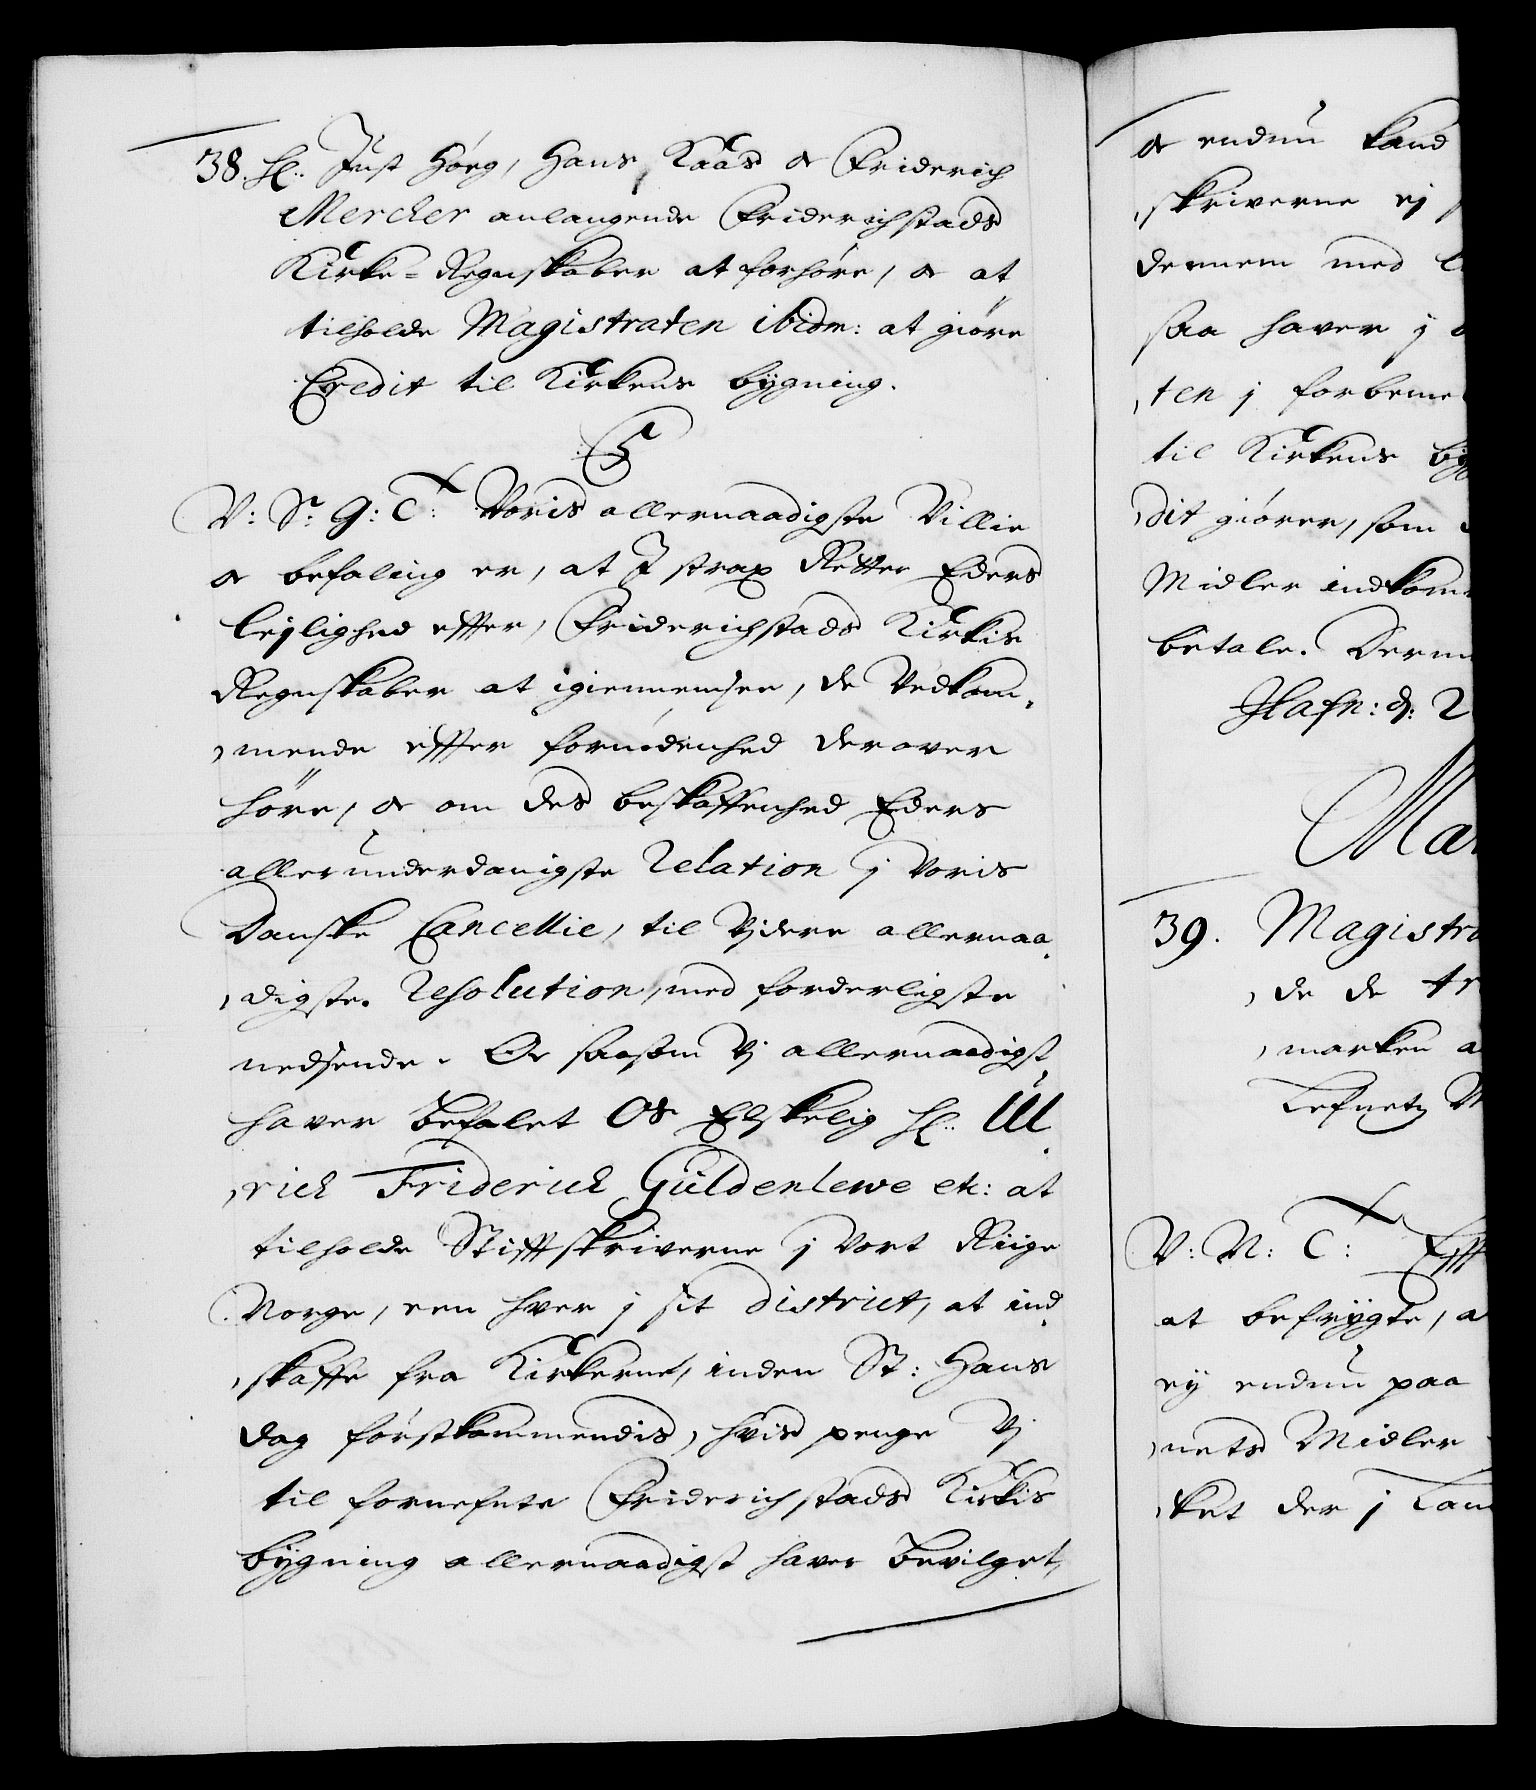 38. Hl. Just Høeg, Hans Kaas oc Friderich
Mercker anlangende Friderichstads
Kirke=Regnskaber at forhøre, oc at
tilholde Magistraten ibidm: at giøre
Credit til Kirkens bygning.
C5
V: Sr: G: T: Voris allernaadigste Villie
oc befaling er, at I strax Retter Eders
lejlighed effter, Friderichstads Kirkis
Regnskaber at igiennemsee, de Vedkom,
,mende effter fornødenhed derover
høre, oc om des beskaffenhed Eders
allerunderdanigste Relation j Voris
Danske Cancellie, til Vjdere allernaa,
,digste Resolution, med forderligste
nedsende. Oc saasom Vj allernaadigst
haver Befalet Os Elskelig Hl. Ul,
,rich Friderich Güldenlewe etc: at
tilholde Stifftskriverne j Vort Riige
Norge, een hver j sit District, at ind,
,skaffe fra Kirkerne, inden St: Hans
dag førstkommendis, hvis penge Vj
til fornefnte Friderichstads Kirkis
bygning allernaadigst haver Bevilget,
oc endnu kand
,skriverne ej
dennem med
saa haver j
,ten j forbeme
til Kirkens byg
,dit giører, som
Midler indkom
betale. Derm
Hafn: d: 2
Mar
39. Magistra
,de de tr
,marken a
Lefnetz
V: N: T: Efft
at befrygte, a
ey endnu paa
,nets Midler
,ket der j Lan